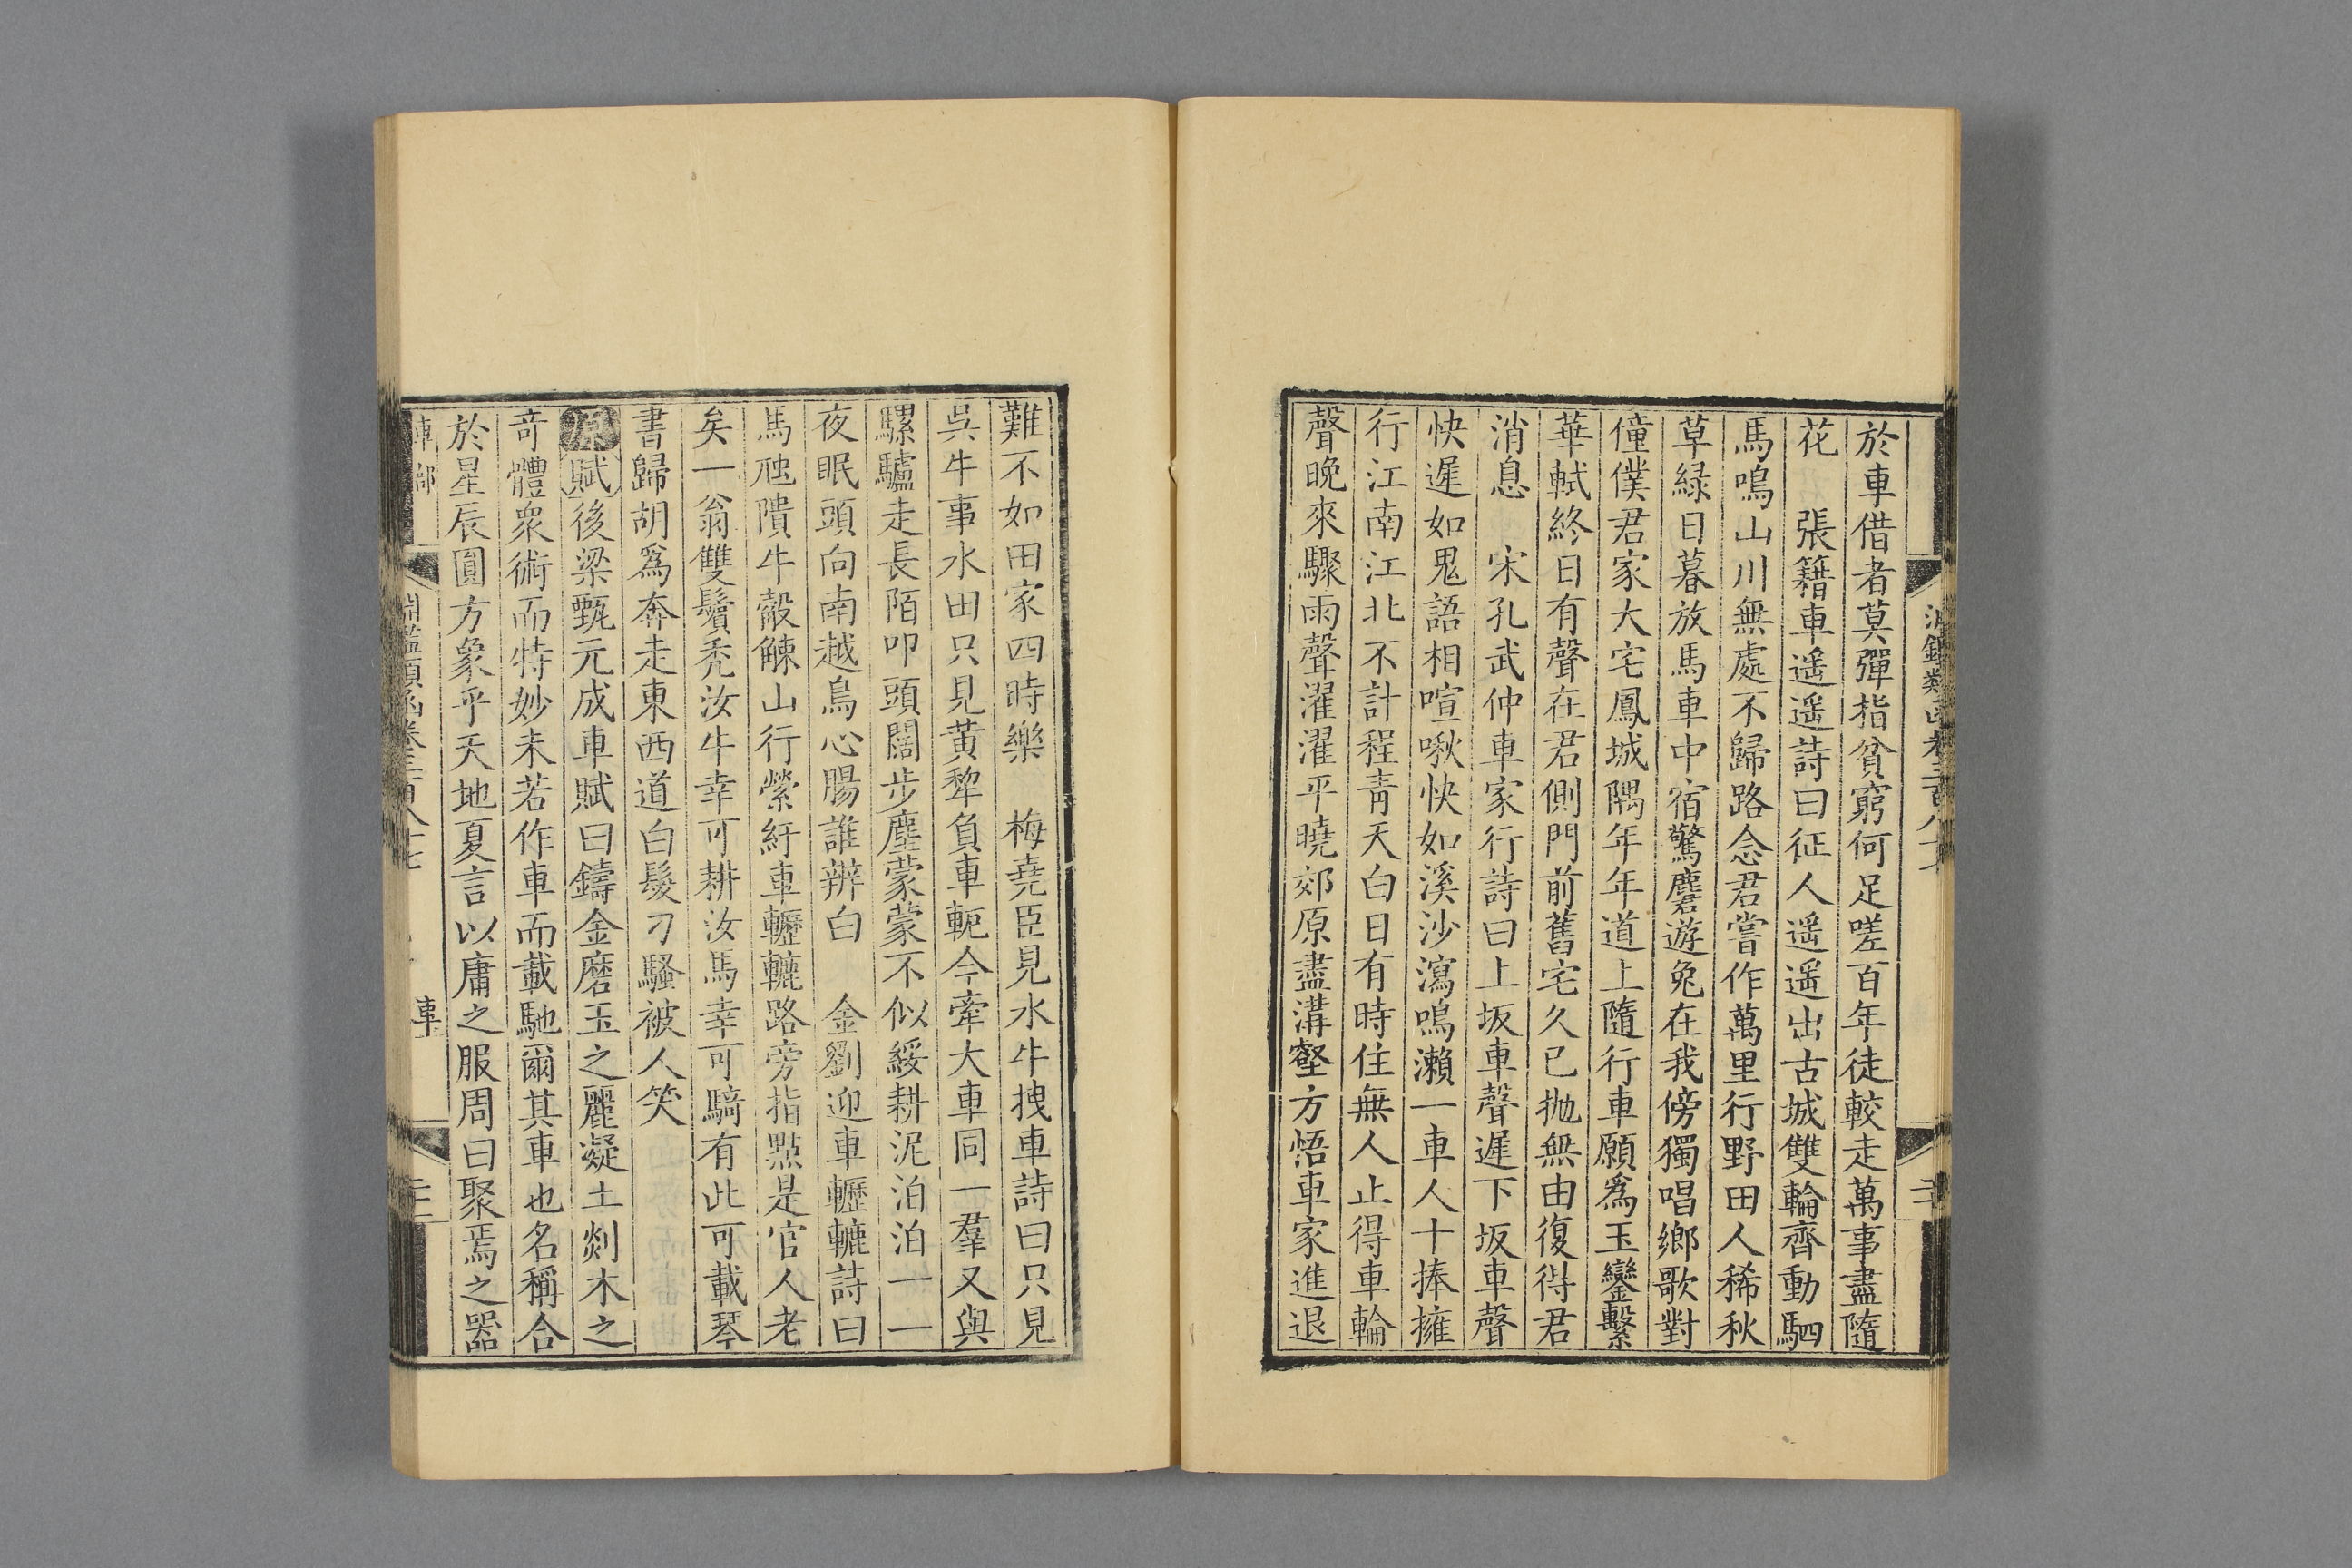 於車借者莫彈指貧窮何足嗟百年徒較走萬事盡隨
花　張籍車遥遥詩曰征人遥遥出古城雙輪齊動駟
馬鳴山川無處不歸路念君嘗作萬里行野田人稀秋
草緑日暮放馬車中宿驚麏遊兔在我傍獨唱鄉歌對
僮僕君家大宅鳳城隅年年道上隨行車願爲玉鑾繫
華軾終日有聲在君側門前舊宅久已抛無由復得君
消息　宋孔武仲車家行詩曰上坂車聲遲下坂車聲
快遲如鬼語相喧啾快如溪沙瀉鳴瀨一車人十捧擁
行江南江北不計程青天白日有時住無人止得車輪
聲晚來驟雨聲濯濯平曉郊原盡溝壑方悟車家進退
難不如田家四時樂　梅堯臣見水牛拽車詩曰只見
吳牛事水田只見黄犂負車軛今牽大車同一羣又與
騾驢走長陌叩頭闊步塵蒙蒙不似綏耕泥泊泊一一
夜眠頭向南越鳥心腸誰辨白　金劉迎車轣轆詩曰
馬虺隤牛觳觫山行縈紆車轣轆路旁指點是官人老
矣一翁雙鬢秃汝牛幸可耕汝馬幸可騎有此可載琴
書歸胡爲奔走東西道白髮刁騷被人笑
原賦後梁甄元成車賦曰鑄金磨玉之麗凝土剡木之
奇體衆術而特妙未若作車而載馳爾其車也名稱合
於星辰圓方象乎天地夏言以庸之服周曰聚焉之器
車部　淵鑑類函卷三百八十七　車　二十一